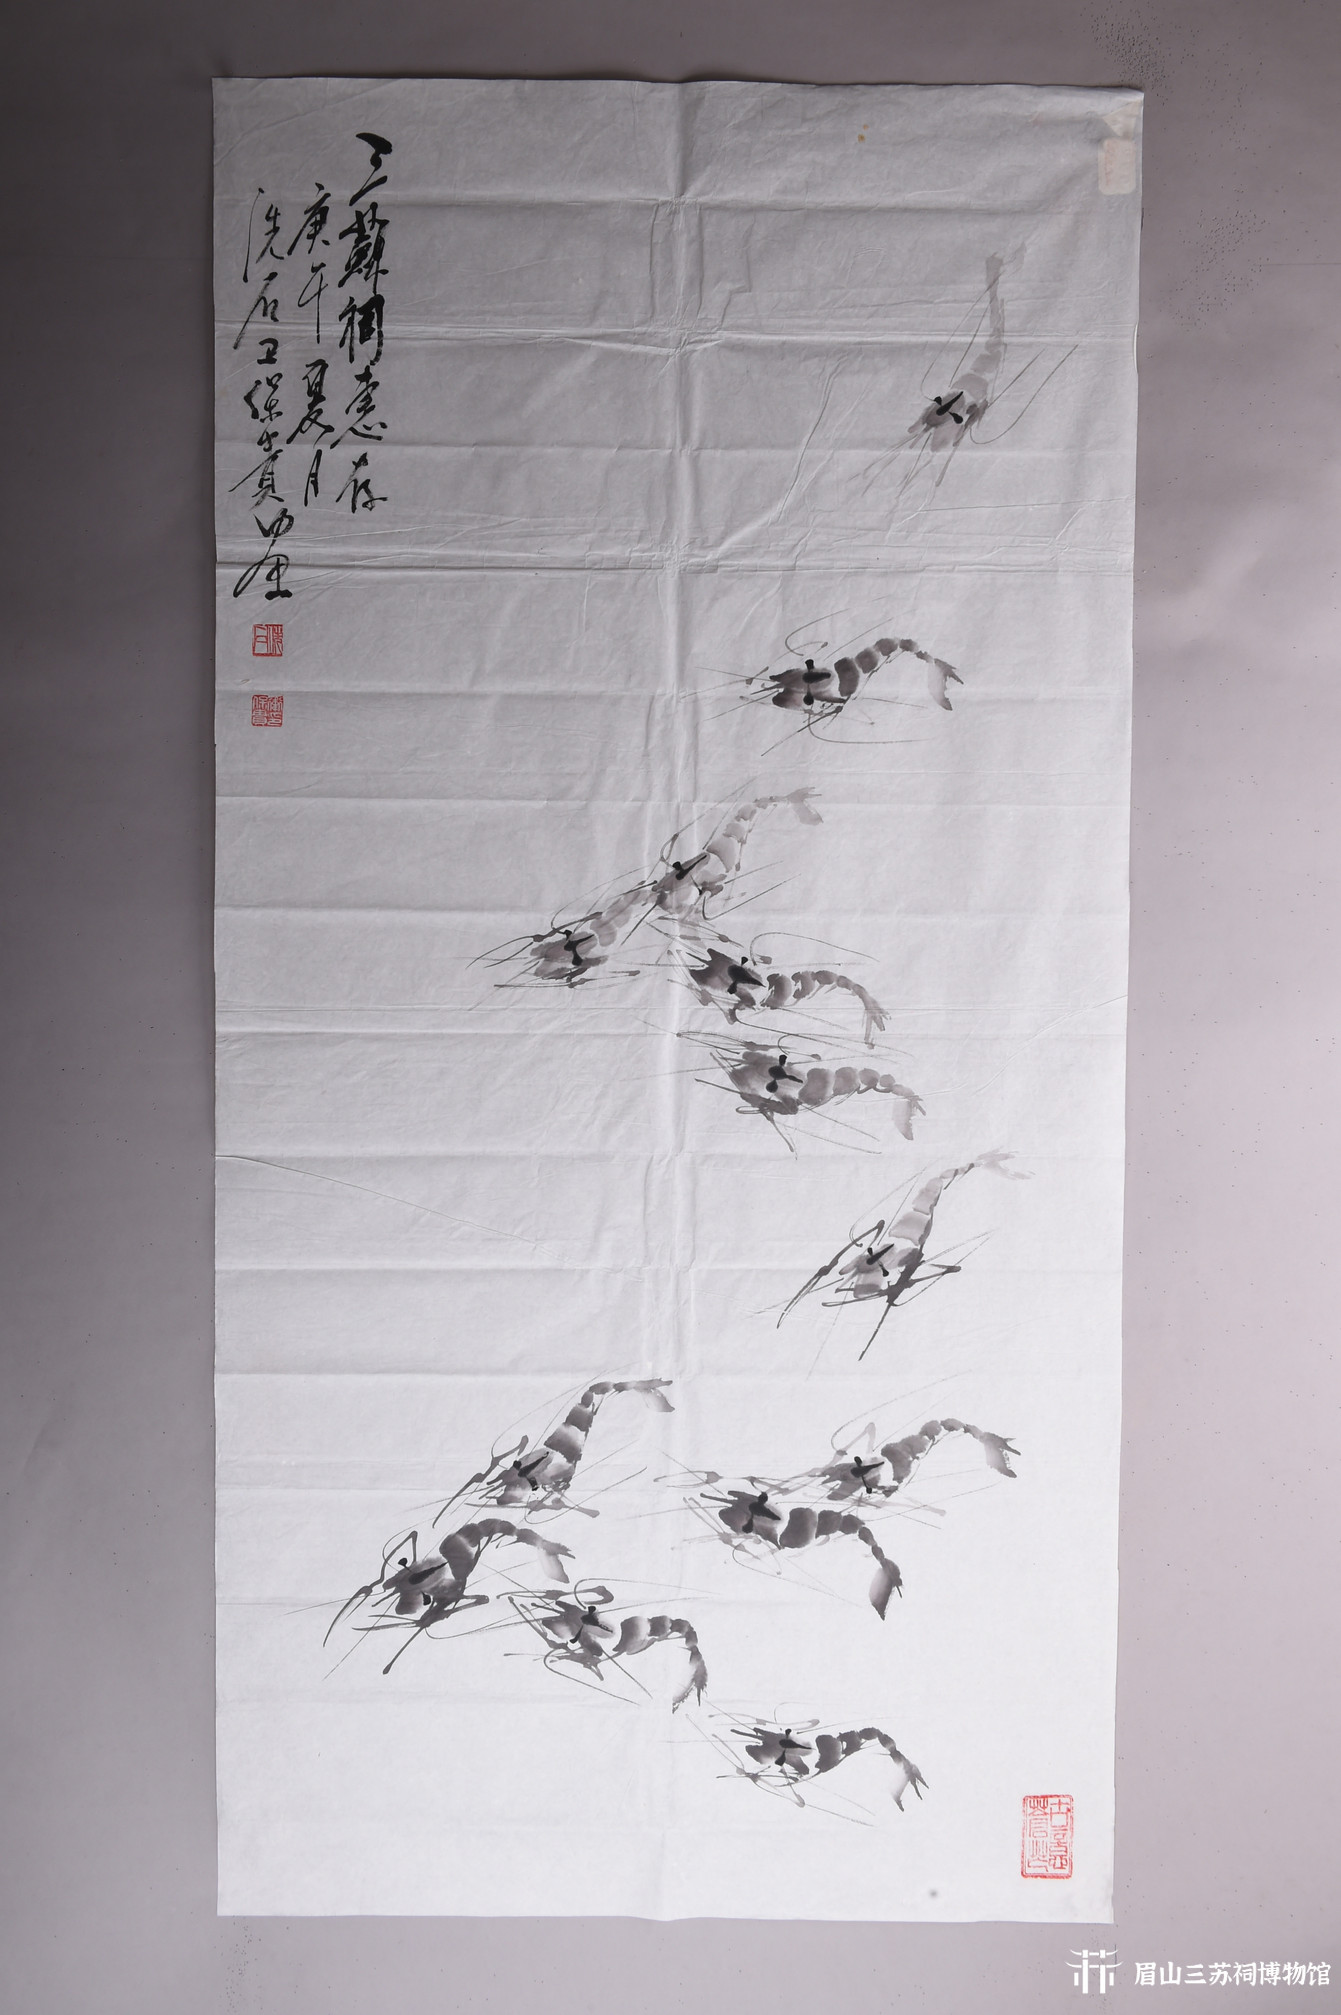 三蘇祠惠存
庚午夏月
洗石卫保贵四画
眉山三苏祠博物馆